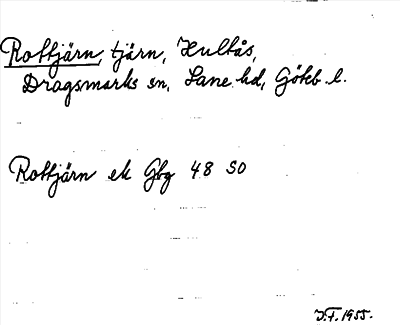 Rottjärn, tjärn, Hultås,
Dragsmarks sn, Lane hd, Göteb. l.
Rottjärn ek Gbg 48 SO
J.F. 1955.